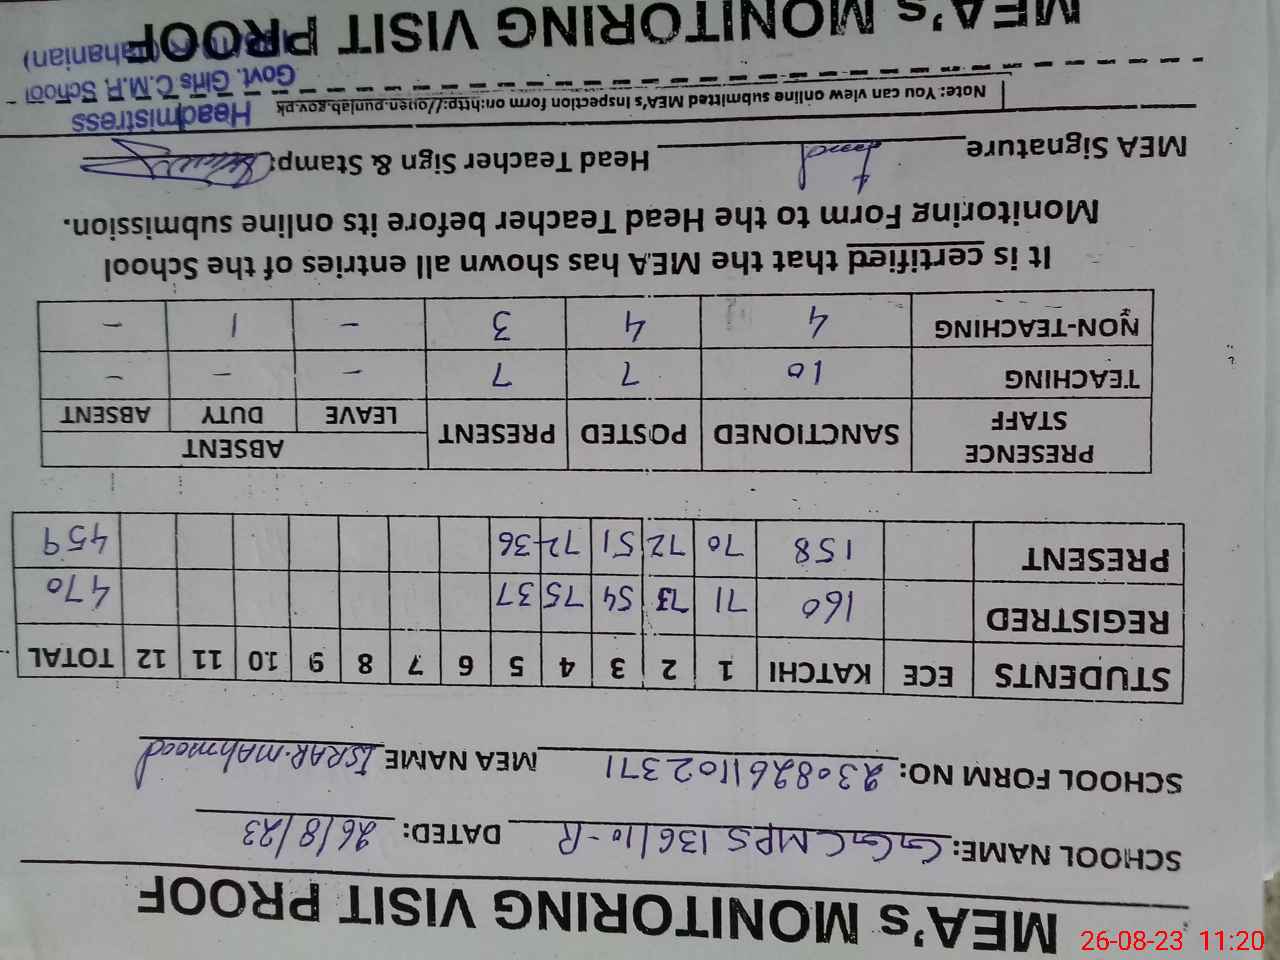 MEA's MONITORING VISIT PROOF
SCHOOL NAME: GGCMPS 136/10-R DATED: 26/8/23
SCHOOL FORM NO: 2308261102371 MEA NAME ISRAR.MAhmood
STUDENTS ECE KATCHI 1 2 3 4 5 6 7 8 9 10 11 12 TOTAL
REGISTRED 160 71 73 54 75 37 470
PRESENT 158 70 72 51 72 36 459
PRESENCE STAFF SANCTIONED POSTED PRESENT ABSENT
LEAVE DUTY ABSENT
TEACHING 10 7 7 - - -
NON-TEACHING 4 4 3 - 1 -
It is certified that the MEA has shown all entries of the School
Monitoring Form to the Head Teacher before its online submission.
MEA Signature Head Teacher Sign & Stamp:
Headmistress
Note: You can view online submitted MEA's Inspection form on:http://open.punjab.gov.pk
Govt. Girls C.M.P. School
MEA's MONITORING VISIT PROOF
26-08-23 11:20